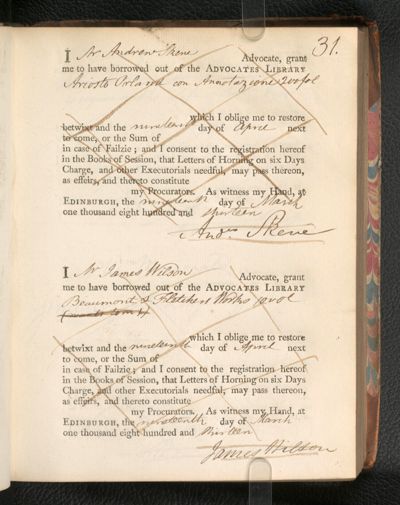 31.
I Mr Andrew Skene Advocate, grant
me to have borrowed out of the ADVOCATES LIBRARY
Ariosto Orland con Annotazione 2 vol
which I oblige me to restore
betwixt and the nineteenth day of April next
to come, or the Sum of
in case of Failzie; and I consent to the registration hereof
in the Books of Session, that Letters of Horning on six Days
Charge, and other Executorials needful, may pass thereon,
as effeirs, and thereto constitute
my Procurators. As witness my Hand, at
EDINBURGH, the nineteenth day of March
one thousand eight hundred and
Andw Skene
I Mr James Wilson Advocate, grant
me to have borrowed out of the ADVOCATES LIBRARY
Beaumont & Fletchers Works 10 vol
(wants tom 1)
which I oblige me to restore
betwixt and the nineteenth day of April next
to come, or the Sum of
in case of Failzie; and I consent to the registration hereof
in the Books of Session, that Letters of Horning on six Days
Charge, and other Executorials needful, may pass thereon,
as effeirs, and thereto constitute
my Procurators. As witness my Hand, at
EDINBURGH, the nineteenth day of March
one thousand eight hundred and
James Wilson